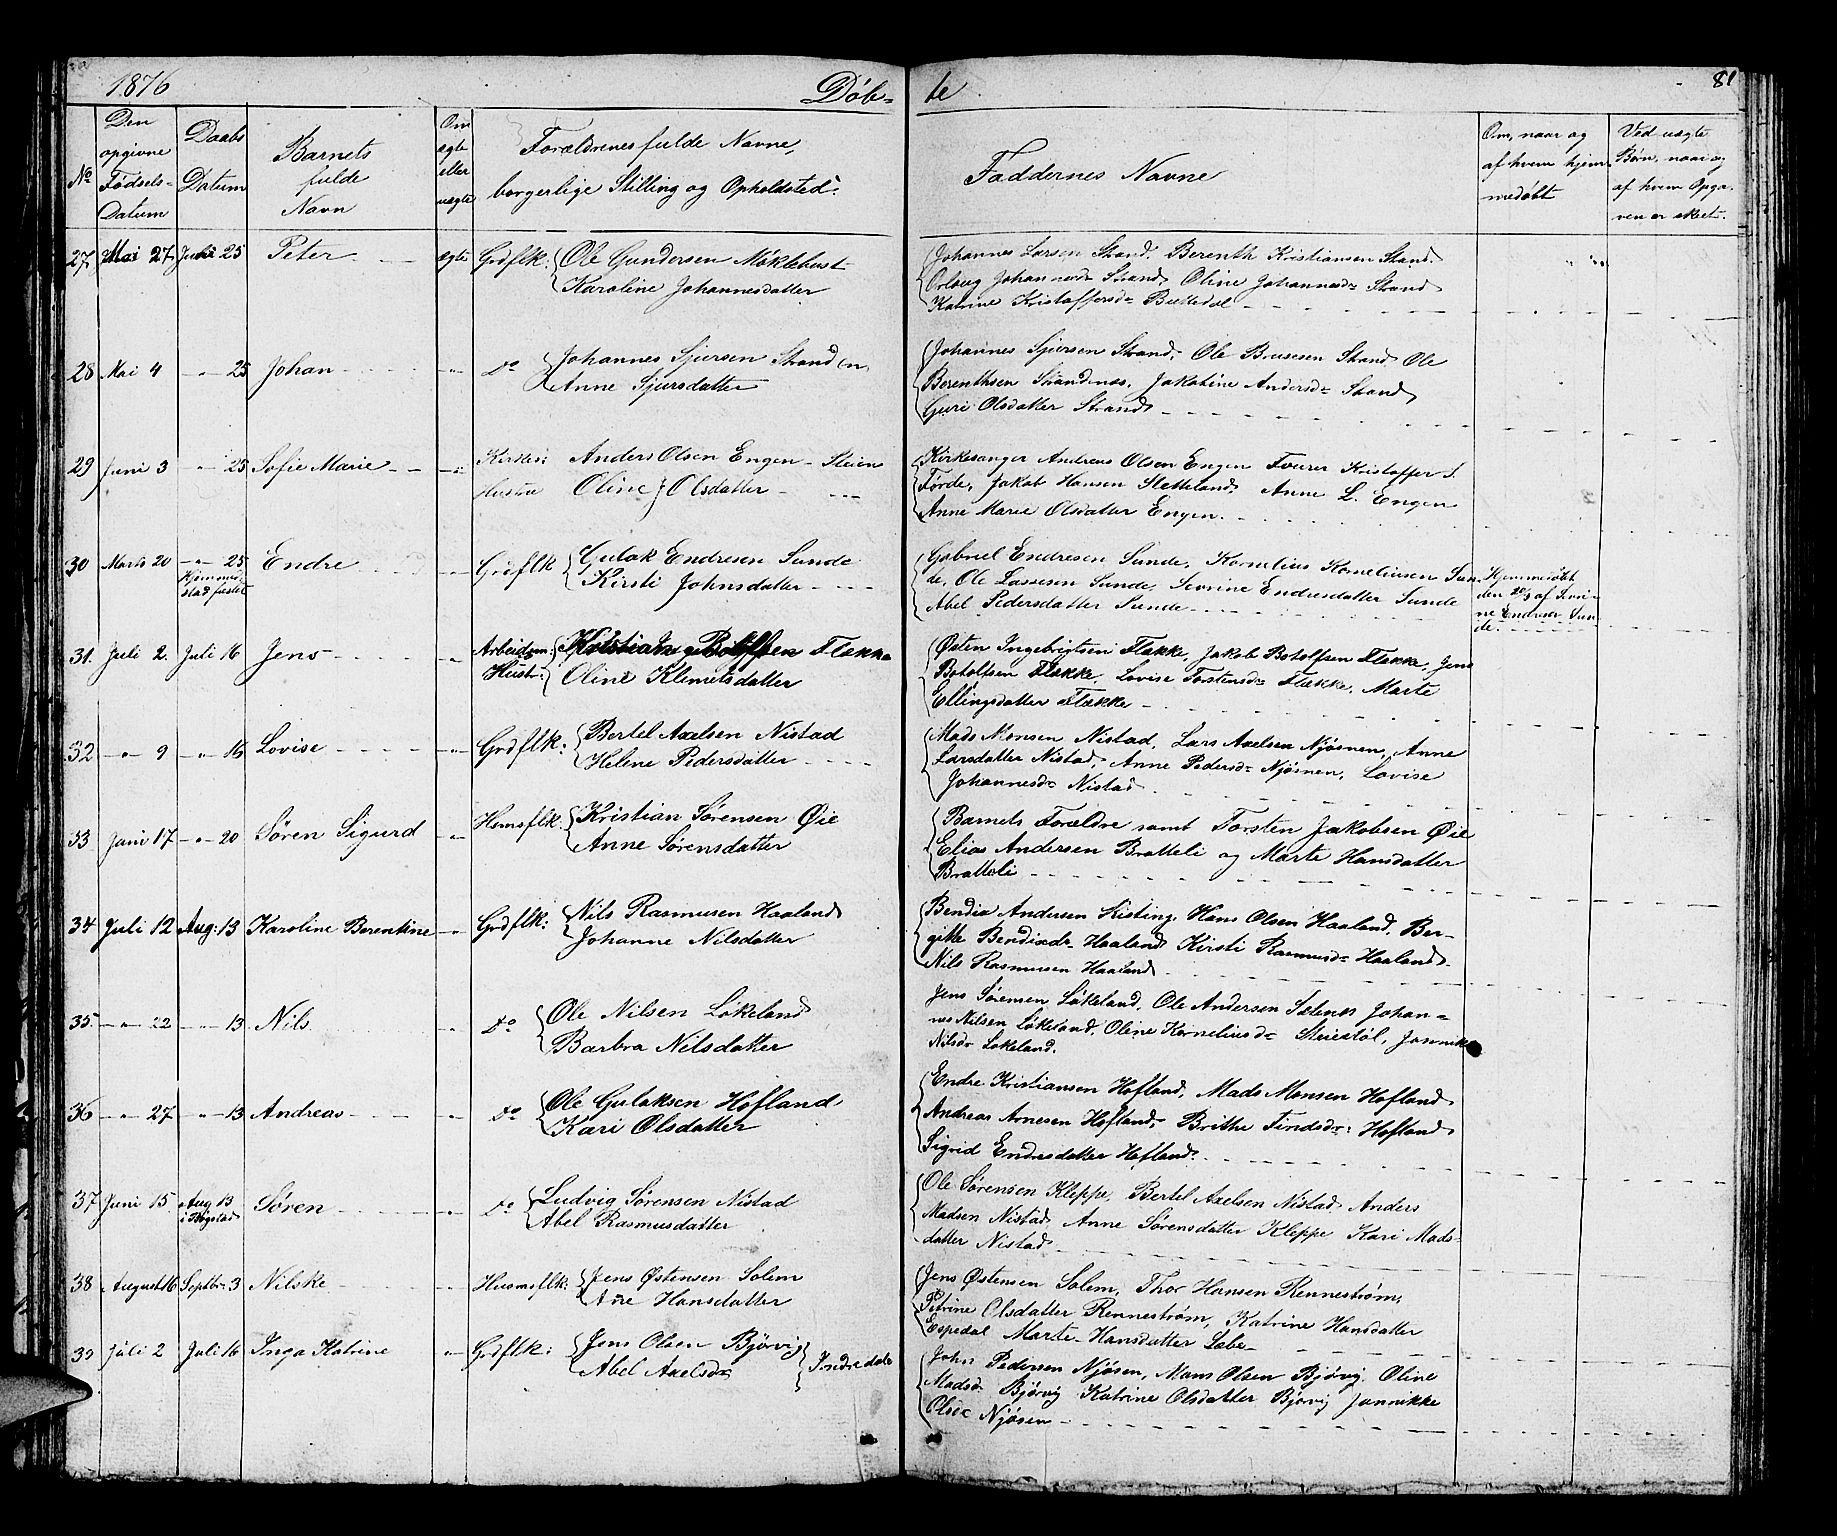 1876 Døb- te 81
No
Den opgivne Fødsels- Datum
Daabs Datum
Barnets fulde Navn
Om ægte eller uægte
Forældrenes fulde Navne, borgerlige Stilling og Opholdsted.
Faddernes Navne
Om, naar og af hvem hjem- medøbt
Ved uægte Børn, naar og af hvem Opga- ven er skeet.
27 Mai 27 Juni 25 Peter ægte Grdflk: Ole Gundersen Møklebust
Karoline Johannesdatter
Johannes Larsen Strand, Berenth Kristiansen Strand,
Johannesdr Strand, Oline Johannesdr Strand
Katrine Kristoffersdr
28 Mai 4 -"- 25 Johan " Do Johannes Sjursen Strand
Anne Sjursdatter
Johannes Sjursen Strand, Ole Strand, Ole
Berenthsen Strandenes, Jakobine Andersdr Strand,
Guri Olsdatter Strand
29 Juni 3 -"- 25 Sofie Marie " Anders Olsen Engen
Hustru Oline Olsdatter
Kirkesanger Andreas Olsen Engen Kristoffer
Førde, Jakob Hansen Sletteland, Anne L. Engen
Anne Marie Olsdatter Engen.
30 Marts 20 -"- 25 Endre " Grdflk Gulak Endresen Sunde
Hjemmedøbt stadfæstet
Kirsti Johnsdatter
Gabriel Endresen Sunde, Kornelius Korneliusen Sun-
de, Ole Lassesen Sunde, Sevrine Endresdatter Sunde
Abel Pedersdatter Sunde
Hjemmedøbt
den 20/3 af Sevri-
ne Endresdr Sun-
de.
31. Juli 2. Juli 16 Jens " Arbeidsm: Kristian Botolfsen Flække
Hustr: Oline Klemetsdatter
Østen Ingebrigtsen Flække, Jakob Botolfsen Flække, Jens
Botolfsen Flække, Lovise Torstensdr Flække, Marte
Ellingsdatter Flække
32 -"- 9 -"- 16 Lovise " Grdflk: Bertel Axelsen Nistad
Helene Pedersdatter
Mads Monsen Nistad, Lars Axelsen Njøsnen, Anne
Larsdatter Nistad, Anne Pedersdr Njøsnen, Lovise
Johannesdr Nistad
33 Juni 17 -"- 20 Søren Sigurd " Husmflk. Kristian Sørensen Øie
Anne Sørensdatter
Barnets Forældre samt Torsten Jakobsen Øie
Elias Andersen Bratteli og Marte Hansdatter
Bratteli
34 Juli 12 Aug: 13 Karoline Berentine " Grdflk: Nils Rasmusen Haaland
Johanne Nilsdatter
Bendix Andersen Kisting, Hans Olsen Haaland, Ber-
gitte Bendixdr Haaland Kirsti Rasmusdr Haaland
Nils Rasmusen Haaland
35. -"- 22 -"- 13 Nils " Do Ole Nilsen Løkeland
Barbra Nilsdatter
Jens Sørensen Løkeland, Ole Andersen Sælenes Johan-
nes Nilsen Løkeland, Oline Korneliusdr Steiestøl, Jannike
Nilsdr Løkeland.
36 -"- 27 -"- 13 Andreas " Do Ole Gulaksen Hofland
Kari Olsdatter
Endre Kristiansen Hofland, Mads Monsen Hofland
Andreas Arnesen Hofland, Brithe Findsdr: Hofland
Sigrid Endresdatter Hofland.
37 Juni 15 Aug 13 Søren " Do Ludvig Sørensen Nistad
Abel Rasmusdatter
Ole Sørensen Kleppe, Bertel Axelsen Nistad Anders
Madsen Nistad, Anne Sørensdatter Kleppe Kari Mads-
datter Nistad
38 August 16 Septbr 3 Nilske " Husmsflk: Jens Østensen Solem
Ane Hansdatter
Jens Østensen Solem, Thor Hansen Rennestrøm,
Petrine Olsdatter Rennestrøm, Katrine Hansdatter
Espedal Marte Hansdatter Løbe
39 Juli 2 Juli 16 Inga Katrine " Grdflk: Jens Olsen Bjørvig
Abel Axelsdr Indredale
John Pedersen Njøsen, Mons Olsen Bjørvig, Oline
Madsdr Bjørvig Katrine Olsdatter Bjørvig Jannikke
Njøsen